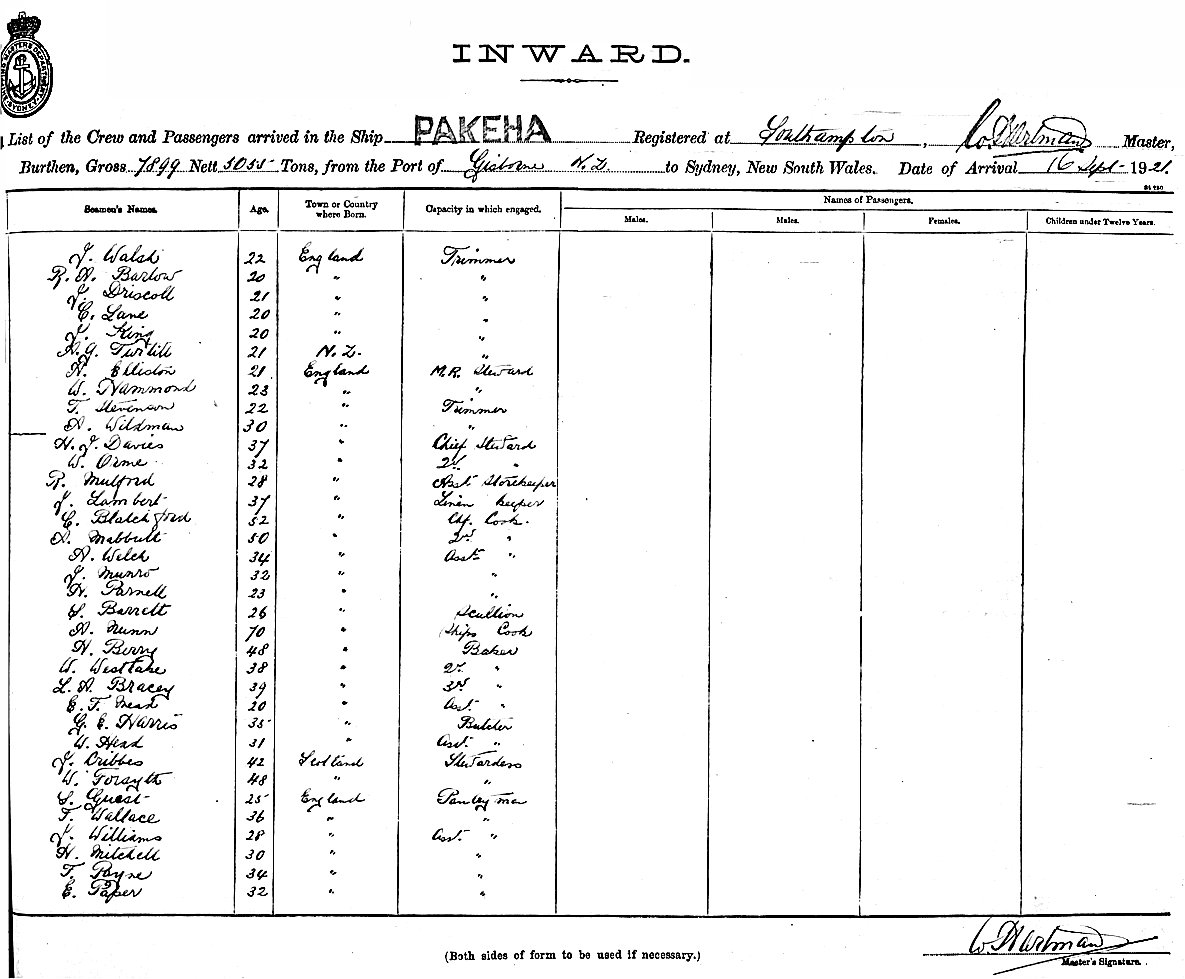 SHIPPING MASTERS DEPARTMENT SYDNEY
INWARD.
List of the Crew and Passengers arrived in the Ship PAKEHA Registered at Southampton, Master,
Burthen, Gross 7899 Nett 5055 Tons, from the Port of Gisborne N.Z. to Sydney, New South Wales. Date of Arrival 16 Sept 1921.
Seamen's Names. Age. Town or Country where Born. Capacity in which engaged. Names of Passengers.
Males. Males. Females. Children under Twelve Years.
J. Walsh 22 England Trimmer
R. A. Barlow 20 " "
J. Driscoll 21 " "
C. Lane 20 " "
J. King 20 " "
21 N.Z. "
A. Elliston 21 England M.R. Steward
W. Hammond 23 " "
T. Stevenson 22 " Trimmer
A. Wildman 30 " "
H. J. Davies 37 " Chief Steward
W. Orme 32 " 2nd "
R. Mulford 28 " Asst Storekeeper
J. Lambert 37 " Linen keeper
C. Blatchford 52 " Chf. Cook.
A. Mabbutt 50 " 2nd "
A. Welch 34 " Asst "
J. Munro 32 " "
H. Parnell 23 " "
S. Barrett 26 " Scullion
A. Nunn 70 " Ships Cook
H. Berry 48 " Baker
W. Westlake 38 " 2nd "
L. A. Bracey 39 " 3rd "
E. F. Mead 20 " Asst. "
G. E. Harris 35 " Butcher
W. Head 31 " Asst. "
J. Cribbes 42 Scotland Stewardess
W. Forsyth 48 " "
S. Guest 25 England Pantry man
F. Wallace 36 " "
J. Williams 28 " Asst. "
H. Mitchell 30 " "
F. Payne 34 " "
E. Paper 32 " "
(Both sides of form to be used if necessary.)
Master's Signature.